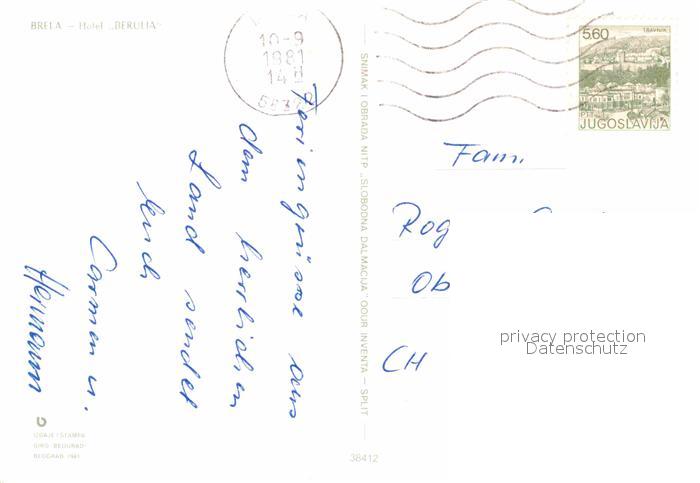 BRELA — Hotel „BERULIA"
10-9
1981
14
5.60
TRAVNIK
JUGOSLAVIJA
Feriengrüsse aus
dem herrlichen
Land sendet
Euch
Carmen u.
Hermann
SNIMAK I OBRADA NITP „SLOBODNA DALMACIJA" OOUR INVENTA — SPLIT
Fam.
Rog
Ob
CH
privacy protection
Datenschutz
IZDAJE I ŠTAMPA
BIRO-BEOGRAD
BEOGRAD 1981
38412